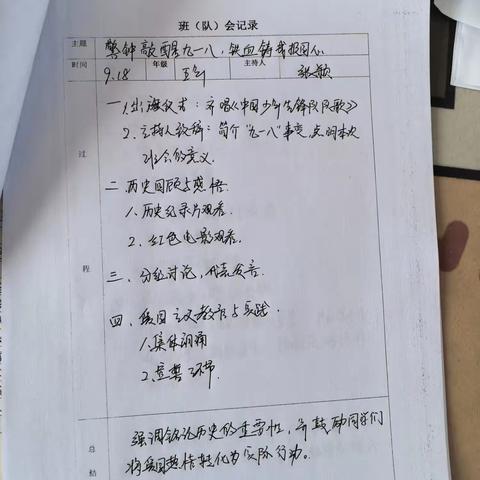 班（队）会记录
主题 警钟敲醒九一八，铁血铸我报国心
时间 9.18 年级 五(1) 主持人 张敏
过
程
一、1.出旗仪式：齐唱《中国少年先锋队队歌》
2.主持人致辞：简介“九一八”事变，点明本次
班会的意义.
二 历史回顾与感悟
1、历史纪录片观看.
2、红色电影观看.
三、分组讨论，代表发言.
四、爱国主义教育与实践.
1.集体朗诵
2.宣誓环节.
总
结
强调铭记历史的重要性，并鼓励同学们
将爱国热情转化为实际行动。